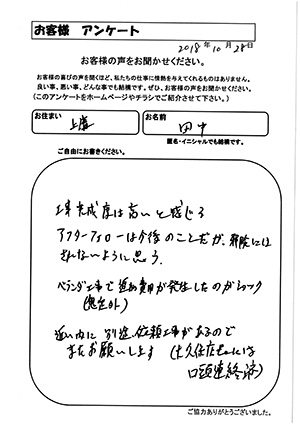 お客様 アンケート
2018年10月28日
お客様の声をお聞かせください。
お客様の喜びの声を聞くほど、私たちの仕事に情熱を与えてくれるものはありません。
良い事、悪い事、どんな事でも結構です。ぜひ、お客様の声をお聞かせください。
(このアンケートをホームページやチラシでご紹介させて下さい。)
お住まい
お名前
田中
匿名・イニシャルでも結構です。
ご自由にお書きください。
工事完成度は高いと感じる
アフターフォローは今後のことだが、邪険には
されないように思う。
ベランダ工事で追加費用が発生したのがショック
(想定外)
近い内に別途依頼工事があるので
またお願いします (大久保店長には
口頭連絡済)
ご協力ありがとうございました。